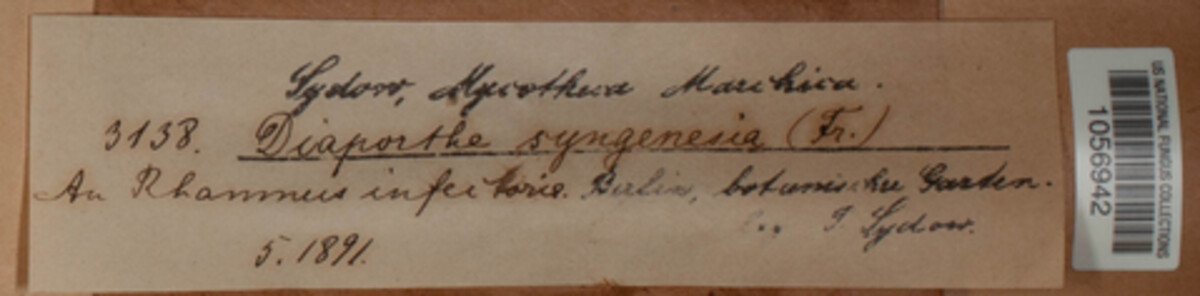 Sydow, Mycotheca Marchica.
3138. Diaporthe syngenesia (Fr.)
An Rhamnus infectoria. Berlin, botanischer Garten.
P. Sydow.
5. 1891.
US NATIONAL FUNGUS COLLECTIONS
1056942